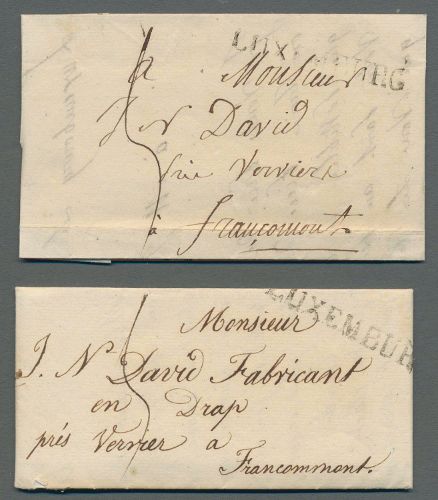 LUXEMBURG
a Monsieur
J N David
près Verviers
à françomont
LUXEMBUR
Monsieur
J. Ns David Fabricant
en Drap
prés Vervier a
Francommont.